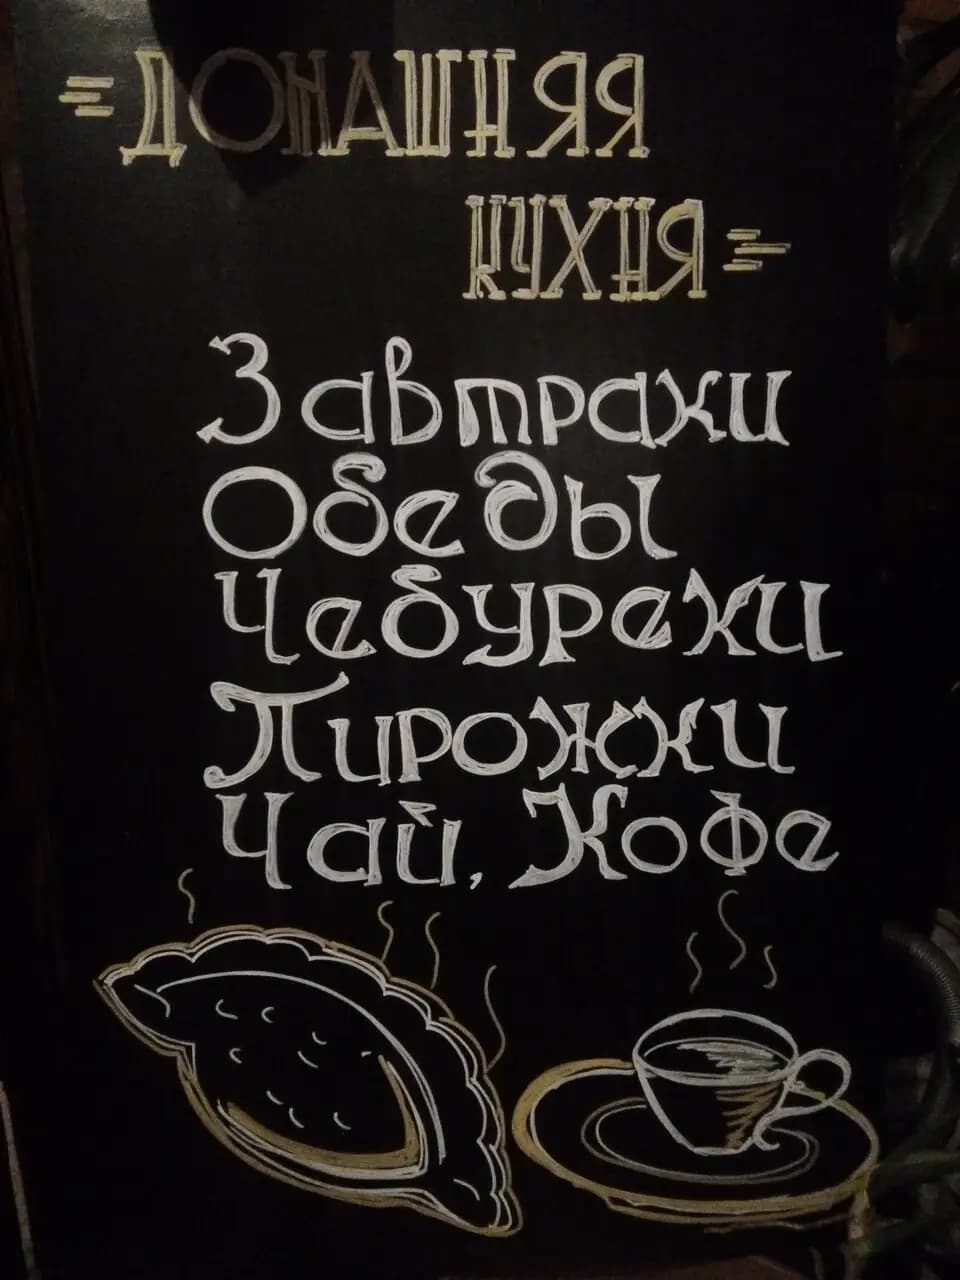 ДОМАШНЯЯ
КУХНЯ
Завтраки
Обеды
Чебуреки
Пирожки
Чай, Кофе